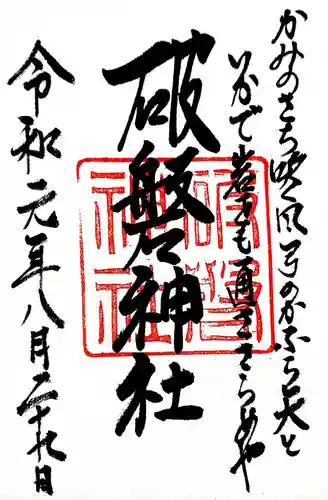 かみのさち吹風弓のかふら矢と
いかで岩をも通さざらめや
破磐神社
令和元年八月二十九日
破磐
神社